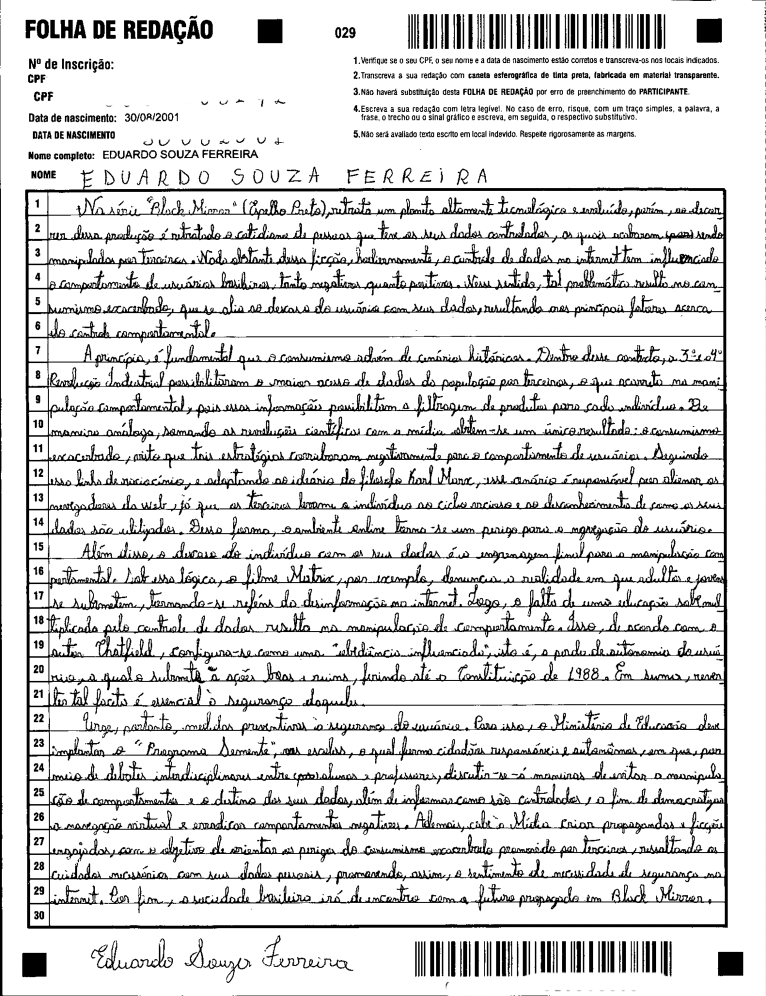 FOLHA DE REDAÇÃO
029
Nº de Inscrição:
CPF
CPF
Data de nascimento: 30/08/2001
DATA DE NASCIMENTO
Nome completo: EDUARDO SOUZA FERREIRA
NOME EDUARDO SOUZA FERREIRA
1. Verifique se o seu CPF, o seu nome e a data de nascimento estão corretos e transcreva-os nos locais indicados.
2. Transcreva a sua redação com caneta esferográfica de tinta preta, fabricada em material transparente.
3. Não haverá substituição desta FOLHA DE REDAÇÃO por erro de preenchimento do PARTICIPANTE.
4. Escreva a sua redação com letra legível. No caso de erro, risque, com um traço simples, a palavra, a
frase, o trecho ou o sinal gráfico e escreva, em seguida, o respectivo substitutivo.
5. Não será avaliado texto escrito em local indevido. Respeite rigorosamente as margens.
1 Na série "Black Mirror" (Espelho Preto), retrata um planeta altamente tecnológico e evoluído, porém, ao decor
2 rer dessa produção é retratado o cotidiano de pessoas que tem os seus dados controlados, os quais acabaram sendo
3 manipulados por terceiros. Nada obstante dessa ficção, hodiernamente, o controle de dados na internet tem influenciado
4 o comportamento de usuários brasileiros, tanto negativos quanto positivos. Nesse sentido, tal problemática resulta no con
5 sumismo exacerbado, que se alia ao descaso do usuário com seus dados, resultando nos principais fatores acerca
6 do controle comportamental.
7 A princípio, é fundamental que o consumismo advém de cenários históricos. Dentro desse contexto, a 3ª e a 4ª
8 Revolução Industrial possibilitaram o maior acesso de dados da população por terceiros, o que acarreta na mani
9 pulação comportamental, pois essas informações possibilitam a filtragem de produtos para cada indivíduo. De
10 maneira análoga, somando as revoluções científicas com a mídia obtem-se um único resultado: o consumismo
11 exacerbado, visto que tais estratégias corroboram negativamente para o comportamento de usuários. Seguindo
12 essa linha de raciocínio, e adaptando ao ideário do filosofo Karl Marx, esse cenário é responsável por alienar os
13 navegadores da web, já que os terceiros levam o indivíduo ao ciclo vicioso e ao desconhecimento de como os seus
14 dados são utilizados. Dessa forma, o ambiente online torna-se um perigo para a navegação do usuário.
15 Além disso, o descaso do indivíduo com os seus dados é a engrenagem final para a manipulação com
16 portamental. Sob essa lógica, o filme Matrix, por exemplo, denuncia a realidade em que adultos e jovens
17 se submetem, tornando-se reféns da desinformação na internet. Logo, a falta de uma educação sob mul
18 tiplicada pelo controle de dados resulta na manipulação de comportamento. Isso, de acordo com o
19 autor Chatfield, configura-se como uma "obediência influenciada", isto é, a perda de autonomia do usuá
20 rio, a qual o submete à ações boas e ruins, ferindo até a Constituição de 1988. Em suma, rever
21 ter tal faceta é essencial à segurança daquele.
22 Urge, portanto, medidas preventivas à segurança do usuário. Para isso, o Ministério da Educação deve
23 implantar o "Programa Semente", nas escolas, o qual forma cidadãos responsáveis e autonômos, em que, por
24 meio de debates interdisciplinares entre alunos e professores, discutir-se-á maneiras de evitar a manipula
25 ção de comportamentos e o destino dos seus dados, além de informar como são controlados, a fim de democratizar
26 a navegação virtual e erradicar comportamentos negativos. Ademais, cabe à Mídia criar propagandas e ficções
27 engajadas, com o objetivo de orientar os perigos do consumismo exacerbado promovido por terceiros, ressaltando os
28 cuidados necessários com seus dados pessoais, promovendo, assim, o sentimento de necessidade de segurança na
29 internet. Por fim, a sociedade brasileira irá de encontro com o futuro propagado em Black Mirror.
30
Eduardo Souza Ferreira